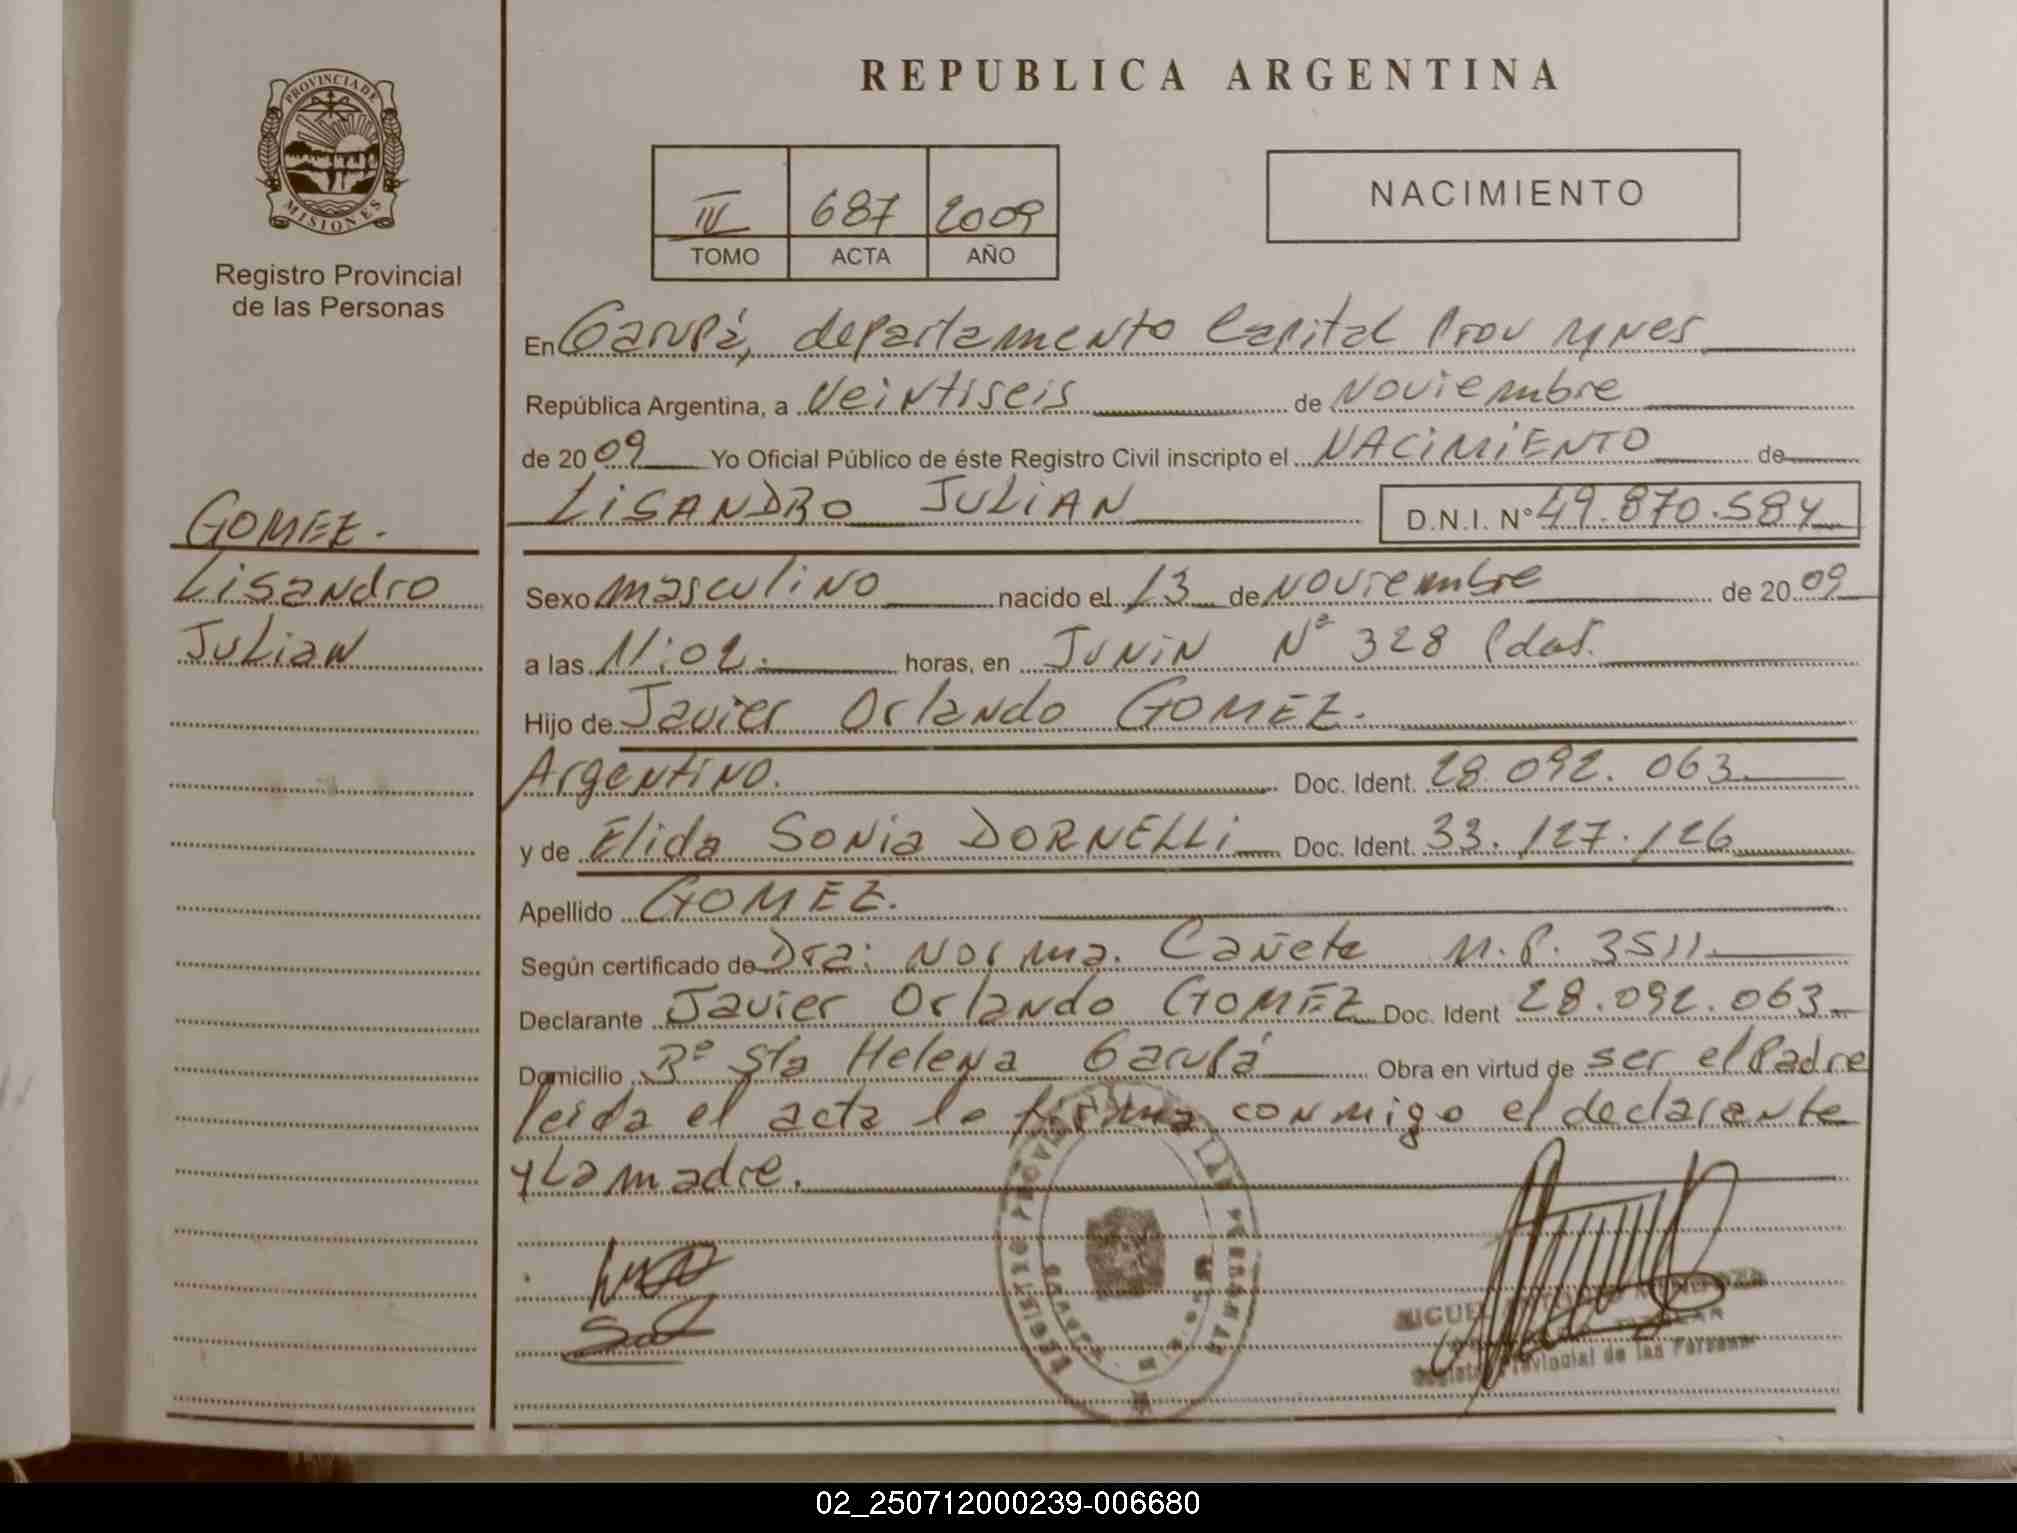 REPUBLICA ARGENTINA
PROVINCIA DE MISIONES
Registro Provincial
de las Personas
IV 687 2009
TOMO ACTA AÑO
NACIMIENTO
En Garupá, departamento Capital Prov Mnes
República Argentina, a Veintiseis de Noviembre
de 2009 Yo Oficial Público de éste Registro Civil inscripto el NACIMIENTO de
LISANDRO JULIAN D.N.I. N° 49.870.584
GOMEZ.
Lisandro
Julian
Sexo masculino nacido el 13 de Noviembre de 2009
a las 11:02. horas, en JUNIN Nº 328 Pdas.
Hijo de Javier Orlando GOMEZ.
Argentino. Doc. Ident. 28.092.063.
y de Elida Sonia DORNELLi Doc. Ident. 33.127.126
Apellido GOMEZ.
Según certificado de Dra: Norma. Cañete M.P. 3511.
Declarante Javier Orlando GOMEZ Doc. Ident 28.092.063.
Domicilio Bº Sta Helena Garupá Obra en virtud de ser el Padre
leida el acta la firma conmigo el declarante
y La madre.
REGISTRO PROVINCIAL DE LAS PERSONAS
MIGUEL ANTONIO MENDOZA
Registro Provincial de las Personas
02_250712000239-006680